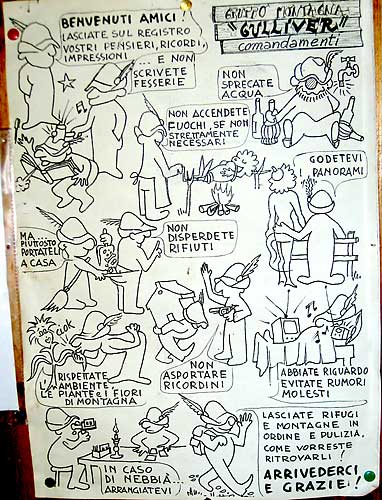 BENVENUTI AMICI!
LASCIATE SUL REGISTRO
VOSTRI PENSIERI, RICORDI,
IMPRESSIONI
... E NON
SCRIVETE
FESSERIE
GRUPPO MONTAGNA
"GULLIVER"
comandamenti
NON
SPRECATE
ACQUA
NON ACCENDETE
FUOCHI, SE NON
STRETTAMENTE
NECESSARI
GODETEVI
I PANORAMI
MA
PIUTTOSTO
PORTATELI
A CASA
NON
DISPERDETE
RIFIUTI
RISPETTATE
L'AMBIENTE
LE PIANTE E I FIORI
DI MONTAGNA
NON
ASPORTARE
RICORDINI
ABBIATE RIGUARDO
EVITATE RUMORI
MOLESTI
IN CASO
DI NEBBIA..
ARRANGIATEVI
LASCIATE RIFUGI
E MONTAGNE IN
ORDINE E PULIZIA,
COME VORRESTE
RITROVARLI!
ARRIVEDERCI
E GRAZIE!